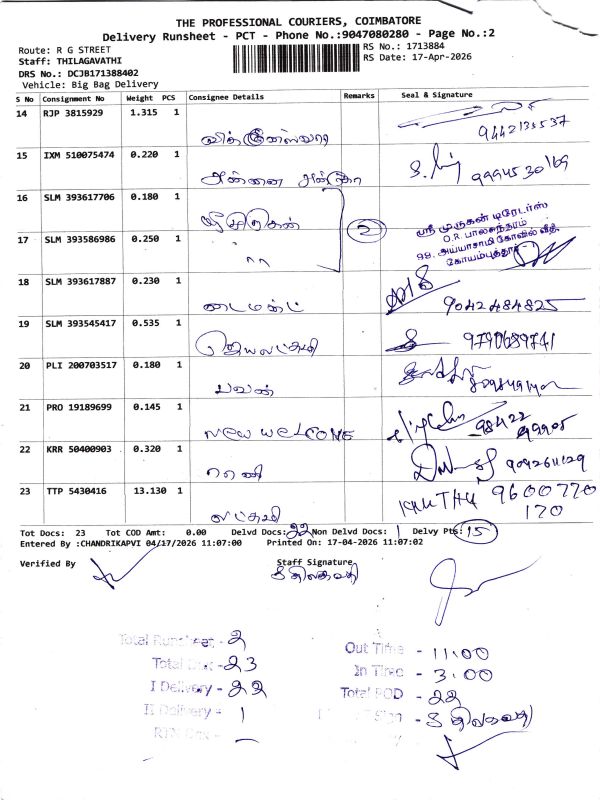 THE PROFESSIONAL COURIERS, COIMBATORE
Delivery Runsheet - PCT - Phone No.:9047080280 - Page No.:2
Route: R G STREET
RS No.: 1713884
Staff: THILAGAVATHI
RS Date: 17-Apr-2026
DRS No.: DCJB171388402
Vehicle: Big Bag Delivery
S No Consignment No Weight PCS Consignee Details Remarks Seal & Signature
14 RJP 3815929 1.315 1
9442135537
15 IXM 510075474 0.220 1
அன்னை
9994530169
16 SLM 393617706 0.180 1
2
ஸ்ரீ முருகன் டிரேடர்ஸ்
O.R. பாலசுந்தரம்
99, அய்யாசாமி கோவில் வீதி,
கோயம்புத்தூர்
17 SLM 393586986 0.250 1
"
18 SLM 393617887 0.230 1
டைமண்ட்
9042484825
19 SLM 393545417 0.535 1
ஜெயலட்சுமி
9790689741
20 PLI 200703517 0.180 1
பவன்
21 PRO 19189699 0.145 1
New WELCOME
98422
22 KRR 50400903 0.320 1
23 TTP 5430416 13.130 1
லட்சுமி
KMUTHU 9600770
170
Tot Docs: 23 Tot COD Amt: 0.00 Delvd Docs: 22 Non Delvd Docs: 1 Delvy Pts: 15
Entered By :CHANDRIKAPVI 04/17/2026 11:07:00 Printed On: 17-04-2026 11:07:02
Verified By
Staff Signature
S திலகவதி
Total Runsheet - 2
Total - 23
I Delivery - 22
II Delivery - 1
Out Time - 11:00
In Time - 3:00
Total POD - 22
Sign - S திலகவதி